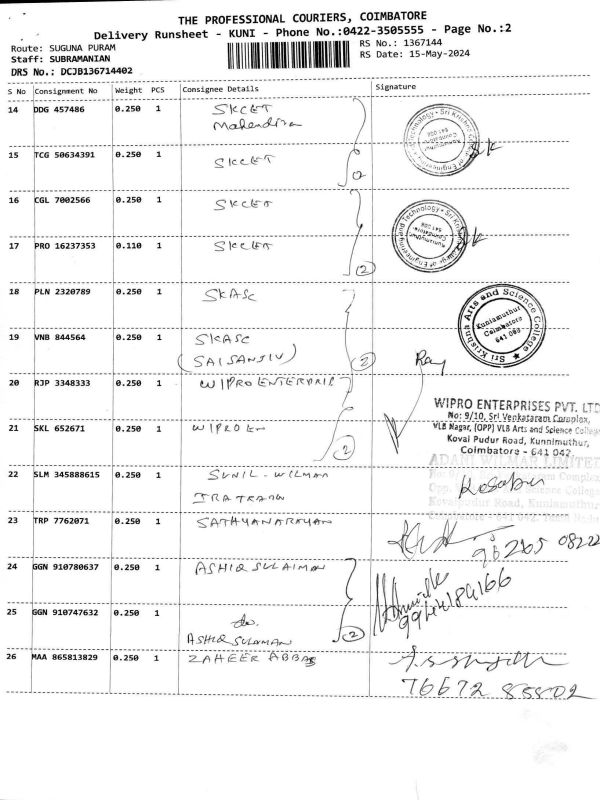 THE PROFESSIONAL COURIERS, COIMBATORE
Delivery Runsheet - KUNI - Phone No.:0422-3505555 - Page No.:2
Route: SUGUNA PURAM
Staff: SUBRAMANIAN
DRS No.: DCJB136714402
RS No.: 1367144
RS Date: 15-May-2024
S No Consignment No Weight PCS Consignee Details Signature
14 DDG 457486 0.250 1 SKCET
Mahendira
15 TCG 50634391 0.250 1 SKCET
16 CGL 7002566 0.250 1 SKCET
17 PRO 16237353 0.110 1 SKCET
2
18 PLN 2320789 0.250 1 SKASC
Sri Krishna Arts and Science College
Kuniamuthur
Coimbatore
641 008
19 VNB 844564 0.250 1 SKASC
(SAISANJIV)
2
20 RJP 3348333 0.250 1 WIPRO ENTERPRIS
WIPRO ENTERPRISES PVT. LTD
No: 9/10, Sri Venkataram Complex,
VLB Nagar, (OPP) VLB Arts and Science College
Kovai Pudur Road, Kunnimuthur,
Coimbatore - 641 042.
21 SKL 652671 0.250 1 WIPRO EN
2
ADANI WILMAR LIMITED
22 SLM 345888615 0.250 1 SUNIL - WILMAR
23 TRP 7762071 0.250 1 SATHYANARAYAN
96265 08222
24 GGN 910780637 0.250 1 ASHIQ SULAIMAN
9944189166
25 GGN 910747632 0.250 1 do.
ASHIQ SULAIMAN
2
26 MAA 865813829 0.250 1 ZAHEER ABBAS
76672 85802